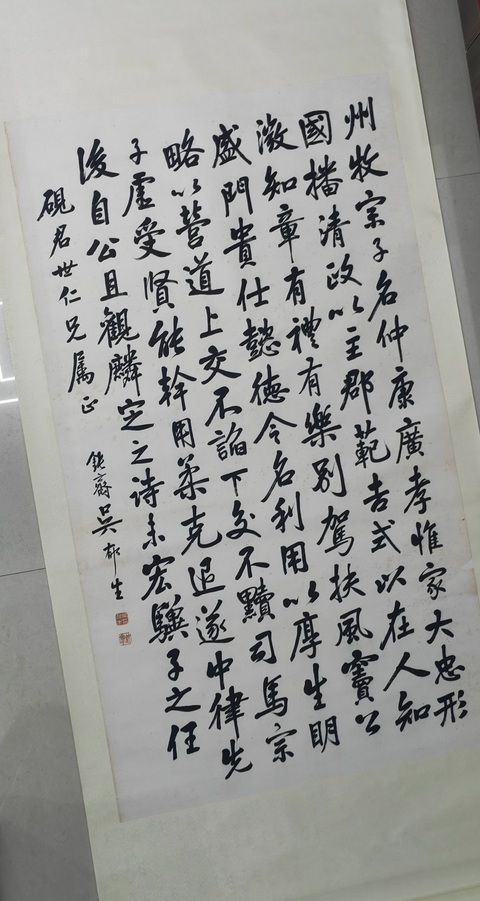 州牧宗子名仲康廣孝惟家大忠形
國播清政以主郡範吉式以在人知
微知章有禮有樂別駕扶風竇公
盛門貴仕懿德令名利用以厚生明
略以營道上交不諂下交不黷司馬宗
子虛受賢能幹用柔克退遂中律先
後自公且觀麟定之詩未宏驥子之任
硯君世仁兄屬正
鈍齋吳郁生